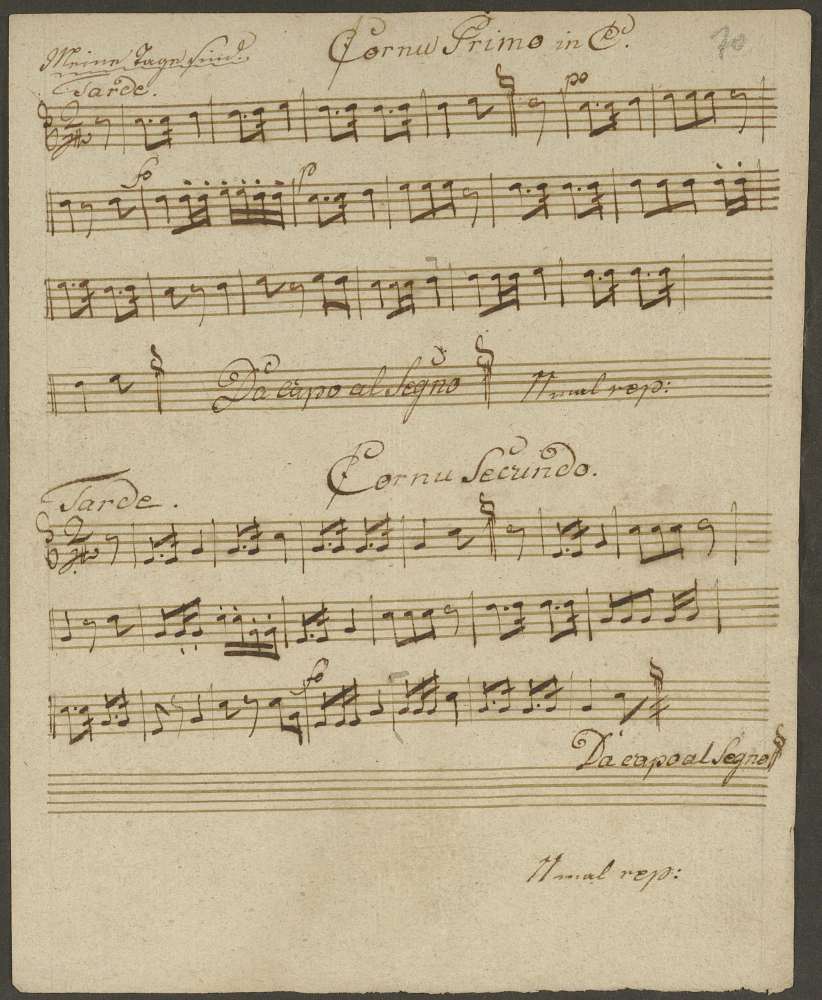 Meine Tage sind.
Cornu Primo in C.
Tarde.
po
fo
p
Da capo al Segno
11 mal rep:
Cornu Secundo.
Tarde.
fo
Da capo al Segno
11 mal rep: